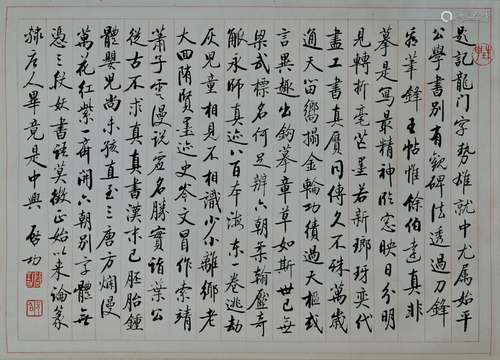 题记龍门字势雄就中尤属始平
公學書别有觀碑法透過刀鋒
看筆鋒王帖惟餘伯遠真非
摹是寫最精神臨窓映日分明
見轉折毫芒墨若新瑯琊奕代
盡工書真贋同傳久不殊萬歲
通天留嚮搨金輪功績過天樞或
言異趣出鈎摹章草如斯世已無
梁武標名何足辨六朝柔翰壓奇
觚永師真迹八百本海东一卷逃劫
灰兒童相見不相識少小離鄉老
大回隋賢墨迹史岑文冒作索靖
蕭子雲漫説虚名勝實詣葉公
從古不求真真書漢末已胚胎鍾
體嬰兒尚未孩直至三唐方爛漫
萬花紅紫一齊開六朝别字體無
憑三段妖書語莫徵正始以來論篆
隸唐人畢竟是中興 啓功